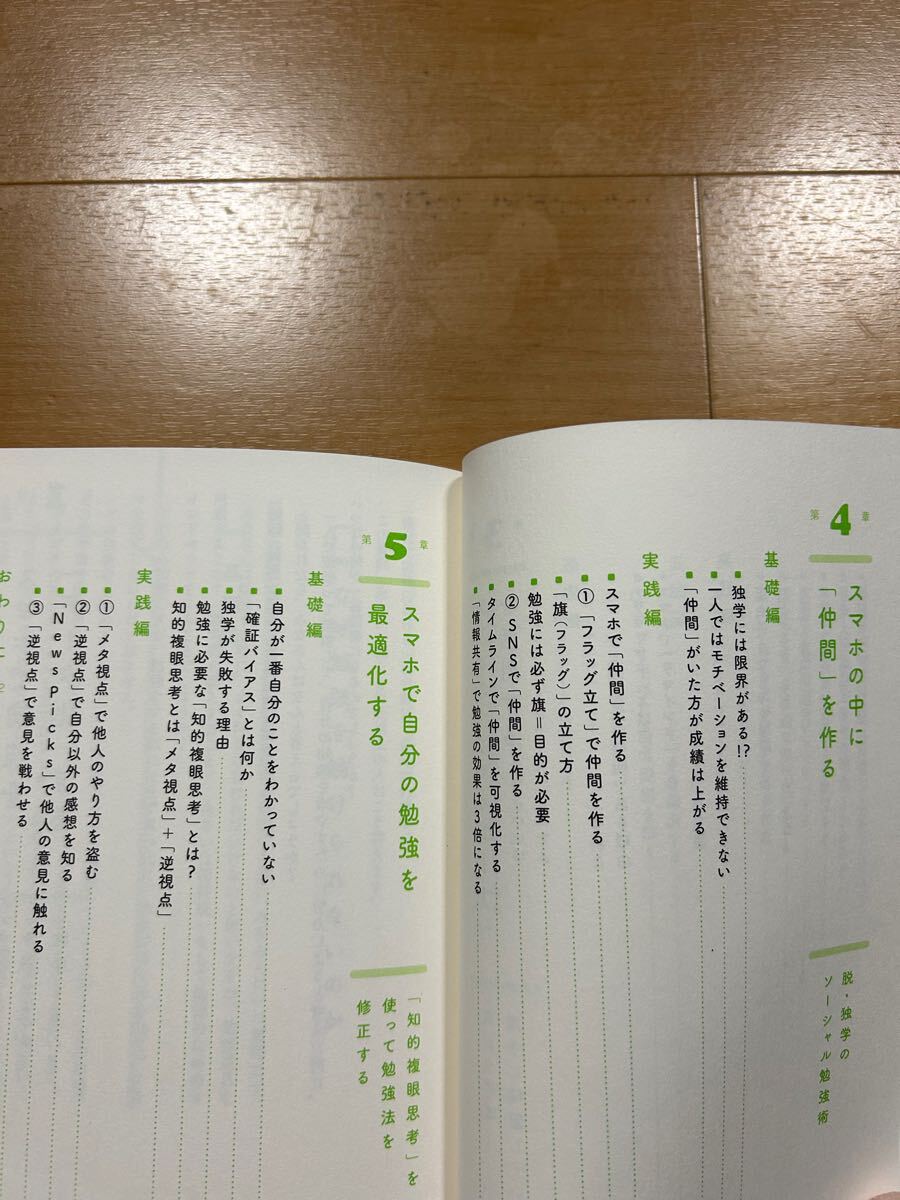 第4章
スマホの中に
「仲間」を作る
脱・独学の
ソーシャル勉強術
基礎編
独学には限界がある!?
一人ではモチベーションを維持できない
「仲間」がいた方が成績は上がる
実践編
スマホで「仲間」を作る
①「フラッグ立て」で仲間を作る
「旗(フラッグ)」の立て方
勉強には必ず旗=目的が必要
②SNSで「仲間」を作る
タイムラインで「仲間」を可視化する
「情報共有」で勉強の効果は3倍になる
第5章
スマホで自分の勉強を
最適化する
「知的複眼思考」を
使って勉強法を
修正する
基礎編
自分が一番自分のことをわかっていない
「確証バイアス」とは何か
独学が失敗する理由
勉強に必要な「知的複眼思考」とは?
知的複眼思考とは「メタ視点」+「逆視点」
実践編
①「メタ視点」で他人のやり方を盗む
②「逆視点」で自分以外の感想を知る
「NewsPicks」で他人の意見に触れる
③「逆視点」で意見を戦わせる
おわりに